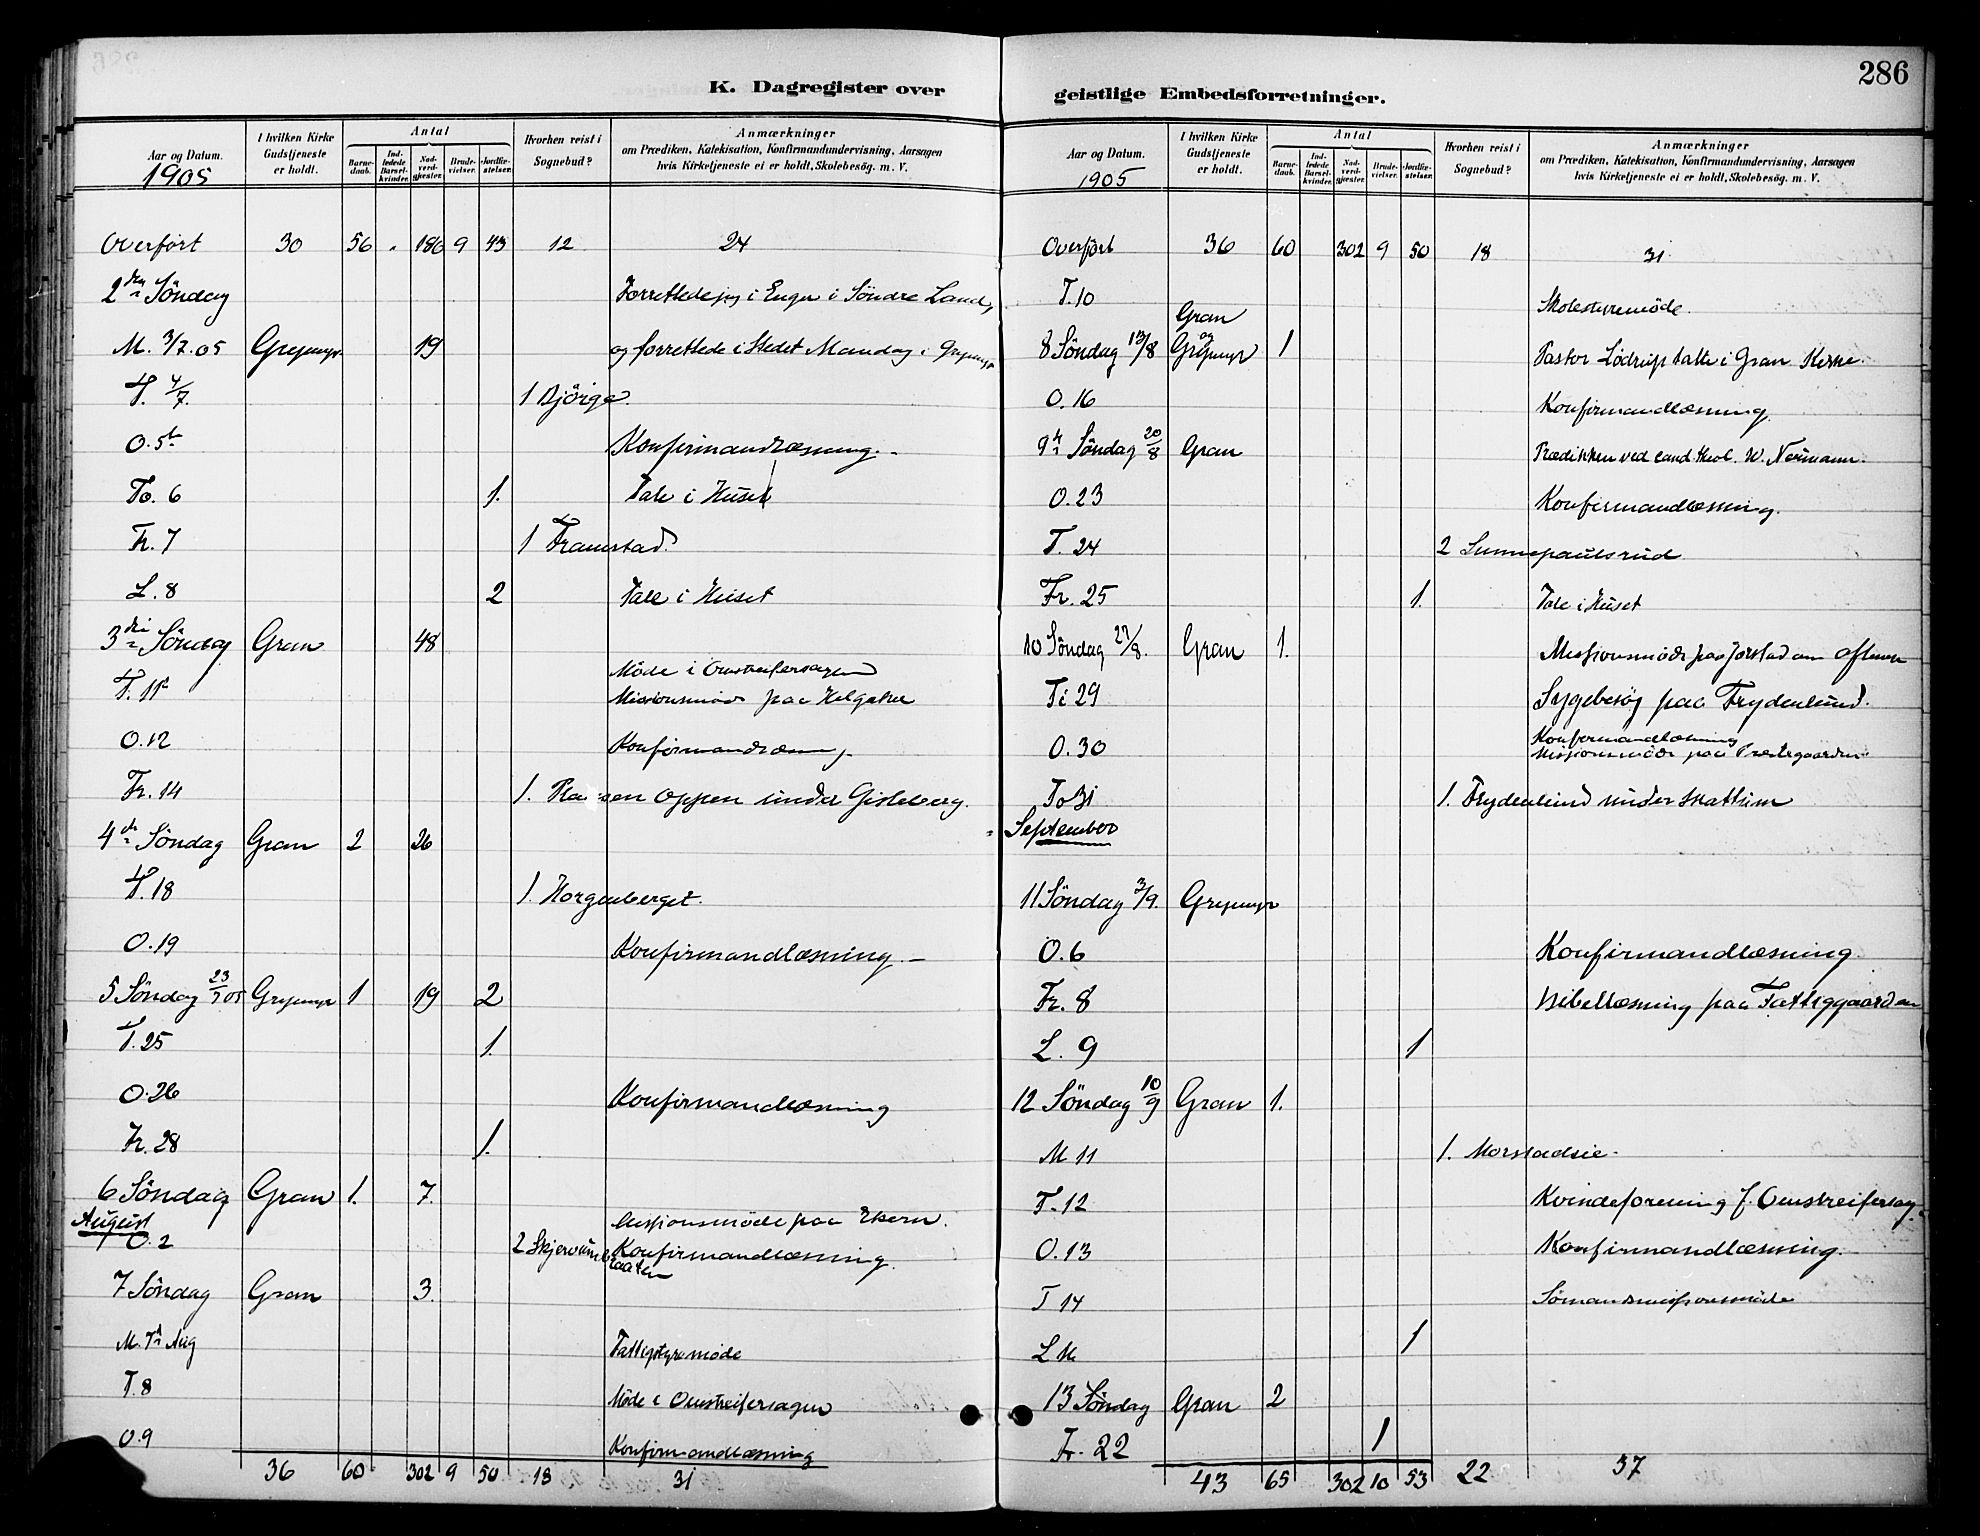 286
K. Dagregister over geistlige Embedsforretninger.
Aar og Datum. 1905
I hvilken Kirke Gudstjeneste er holdt.
Antal
Barnedaab.
Indledede Barselkvinder.
Nadverdgjester.
Brudevielser.
Jordfæstelser.
Hvorhen reist i Sognebud?
Anmærkninger om Prædiken, Katekisation, Konfirmandundervisning, Aarsagen hvis Kirketjeneste ei er holdt, Skolebesøg. m. V.
Overført 30 56 " 180 9 43 12 24
2den Söndag Forrettede jeg i Enger i Söndre Land,
M. 3/7.05 Grymyr 19 og forrettede i Stedet Mandag i Grymyr
T. 4/7. 1 Björge
O. 5te Konfirmandlæsning.
To. 6 1. Tale i Huset
Fr. 7 1 Framstad
L. 8 2 Tale i Huset
3die Söndag Gran 48
Møde i Omstreifersagen
T. 11te Missionsmøde paa Helgaker
O. 12 Konfirmandlæsning.
Fr. 14 1. Pladsen Oppen under Gisleberg.
4de Söndag Gran 2 26
T. 18 1. Horgenberget.
O. 19 Konfirmandlæsning.
5 Söndag 23/7 05 Grymyr 1 19 2
T. 25 1.
O. 26 Konfirmandlæsning
Fr. 28 1.
6 Söndag Gran 1. 7.
August Missionsmöde paa Ekern.
O. 2 2 Konfirmandlæsning.
7 Söndag Gran 3.
M. 7de Aug Fattigstyremøde
T. 8 Møde i Omstreifersagen
O. 9 Konfirmandlæsning
36 60 302 9 50 18 31
Aar og Datum. 1905
I hvilken Kirke Gudstjeneste er holdt.
Antal
Barnedaab.
Indledede Barselkvinder.
Nadverdgjester.
Brudevielser.
Jordfæstelser.
Hvorhen reist i Sognebud?
Anmærkninger om Prædiken, Katekisation, Konfirmandundervisning, Aarsagen hvis Kirketjeneste ei er holdt, Skolebesøg. m. V.
Overført 36 60 302 9 50 18 31
T. 10 Skolestyremöde.
8 Söndag 13/8 Gran og Grymyr 1 Pastor Lödrup talte i Gran Kirke.
O. 16 Konfirmandlæsning.
9de Söndag 20/8 Gran Prædikken ved cand. theol. W. Normann.
O. 23 Konfirmandlæsning.
T. 24 2 Sunnepaulsrud
Fr. 25 1. Tale i Huset
10 Söndag 27/8. Gran 1. Missionsmöde paa Jorstad om Aftenen
Ti 29 Sygebesög paa Frydenlund.
O. 30 Konfirmandlæsning
Missionsmöde paa Præstegaarden
To 31 1. Frydenlund under Skattum
September
11 Söndag 3/9. Grymyr
O. 6 Konfirmandlæsning
Fr. 8 Bibellæsning paa Fattiggaarden
L. 9 1
12 Söndag 10/9 Gran 1.
M 11 1. Morstadeie
T. 12 Kvindeforening f. Omstreifersag.
O. 13 Konfirmandlæsning.
T 14 Sömandsmissionsmöde
L 16 1
13 Söndag Gran 2
Fr. 22 1
43 65 302 10 53 22 37